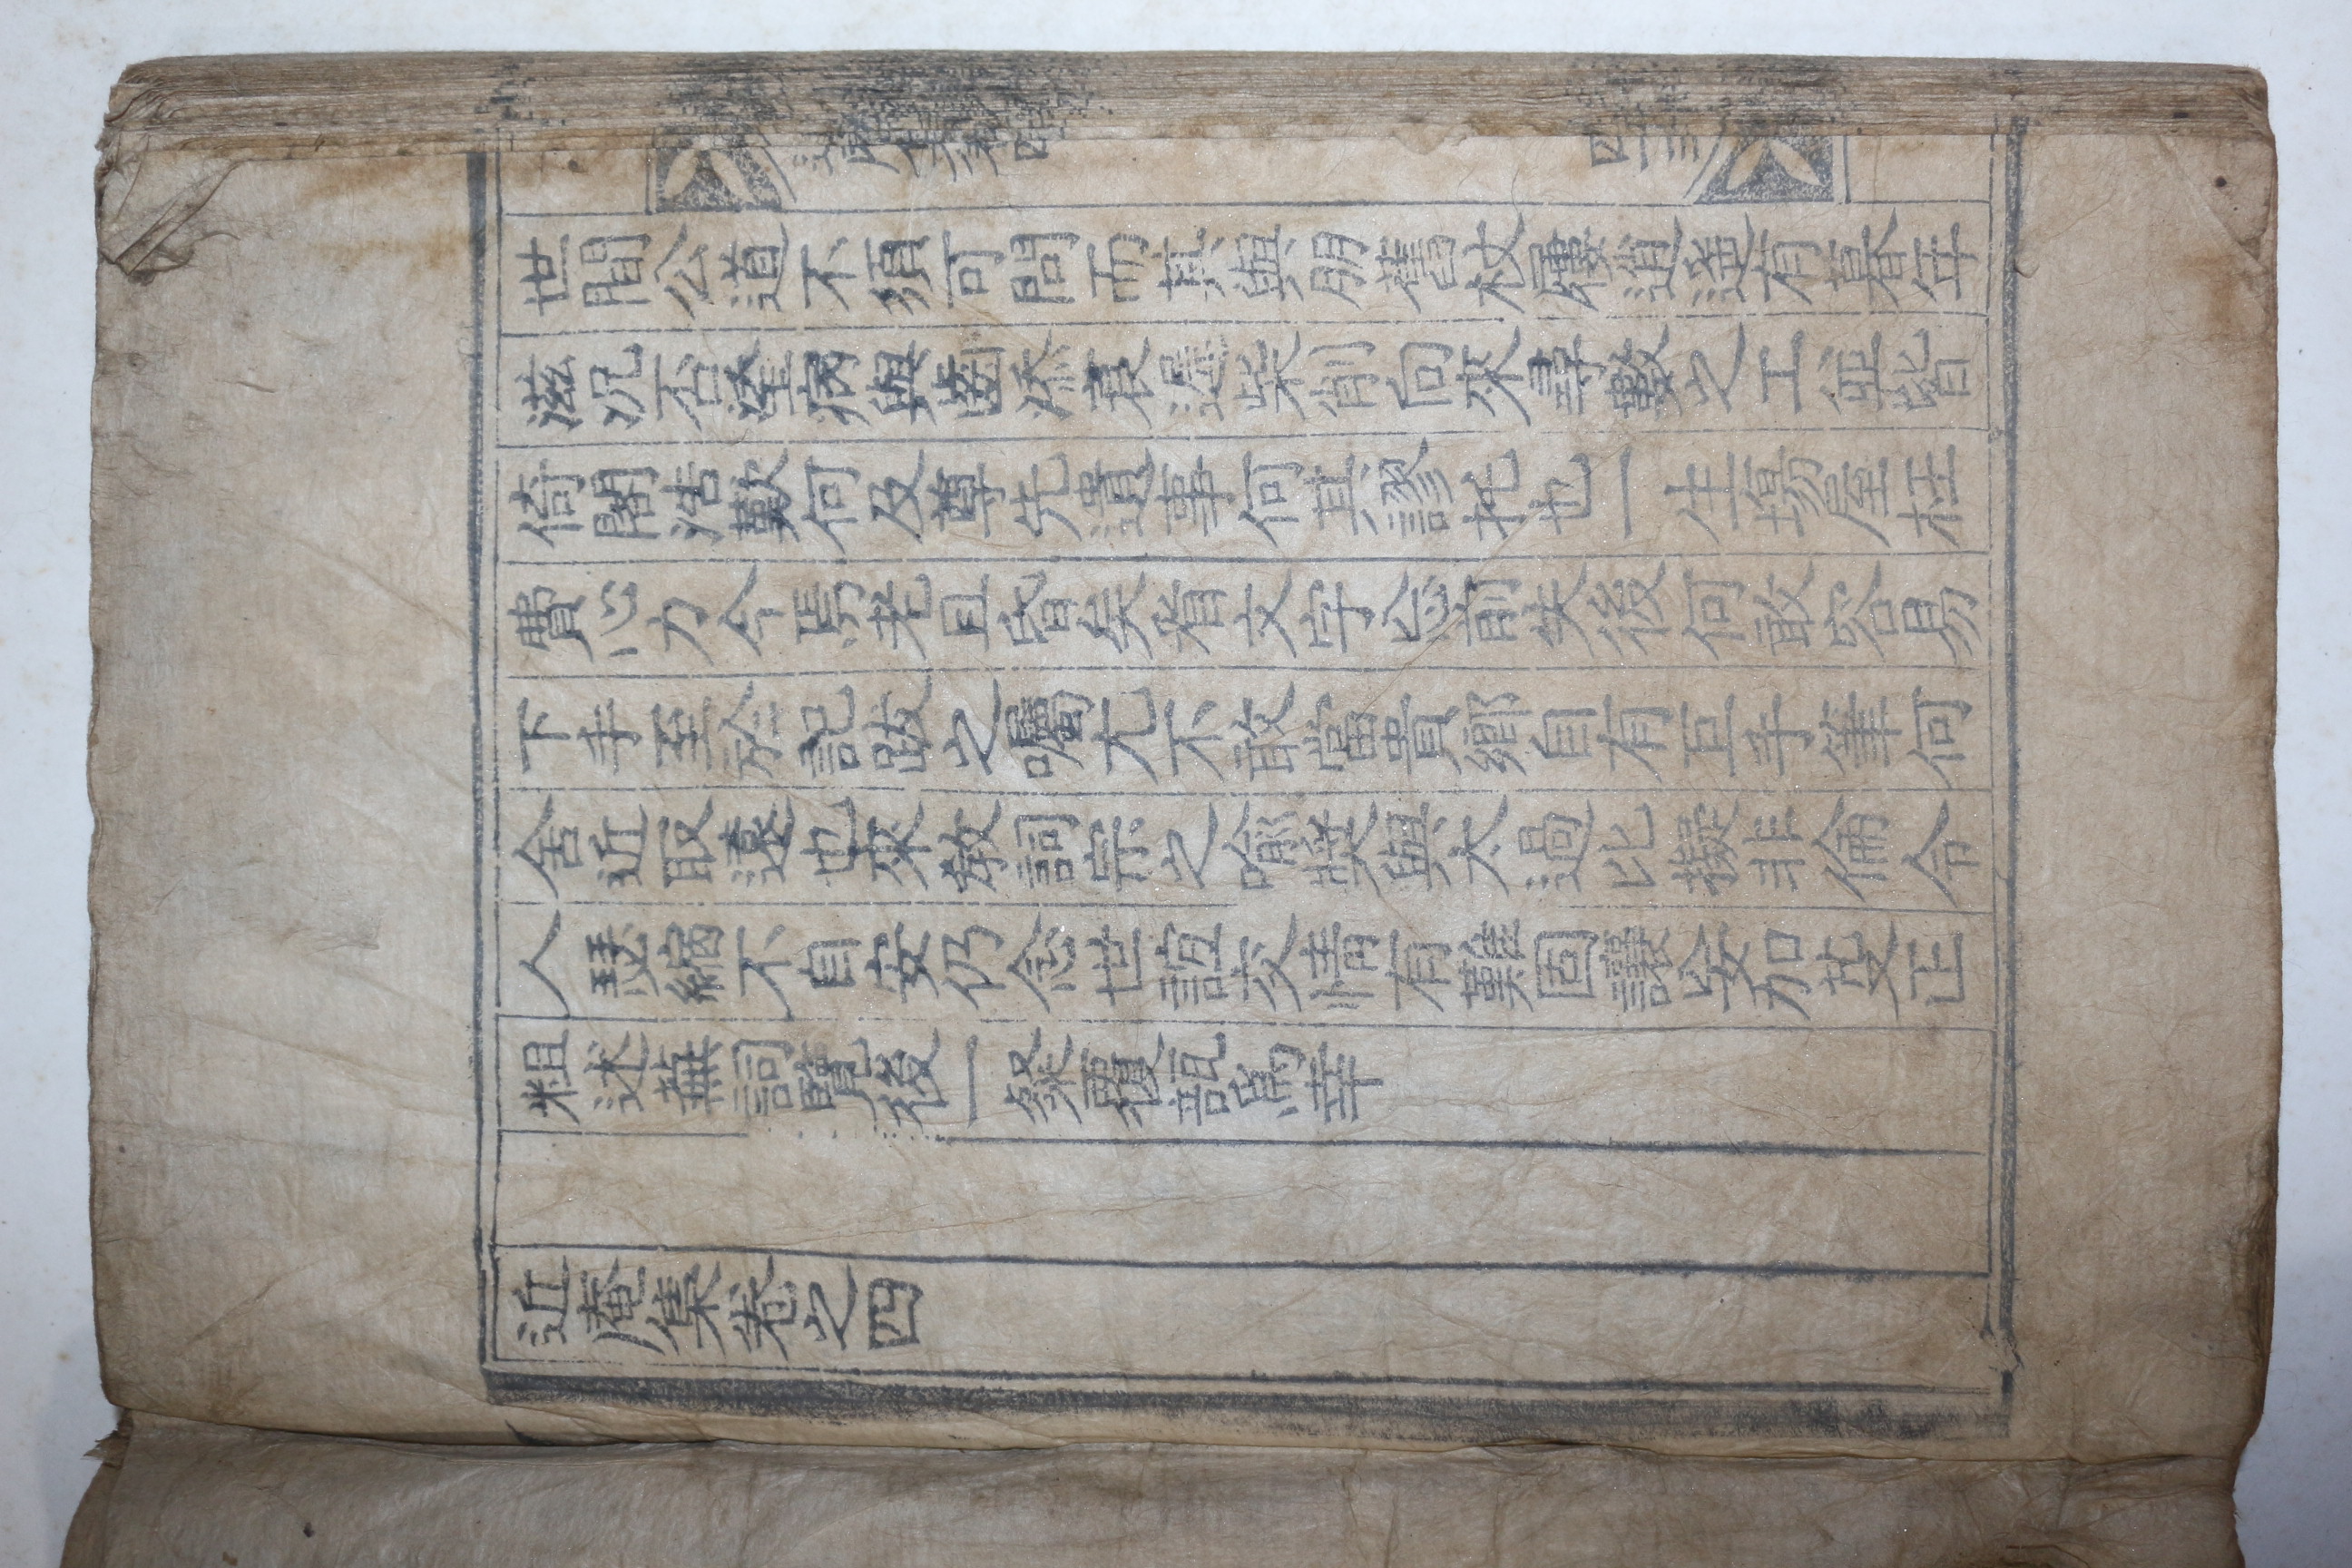 世間公道不須可問而其與朋舊杖屨逍遙有暮年
滋况否瀅病與齒添衰遲柴削向來尋數之工並皆
倚閣浩歎何及尊先遺事何其謬托也一生塲屋枉
費心力今焉老且昏矣看文字忘前失後何敢容易
下手至於記跋之囑尤不敢當貴鄉自有巨手筆何
舍近取遠也來敎詞宗之喩奬與太過比擬非倫令
人瑟縮不自安仍念世誼交情有難固讓妄加芟正
粗述蕪詞覽後一粲覆瓿爲幸
近庵集卷之四